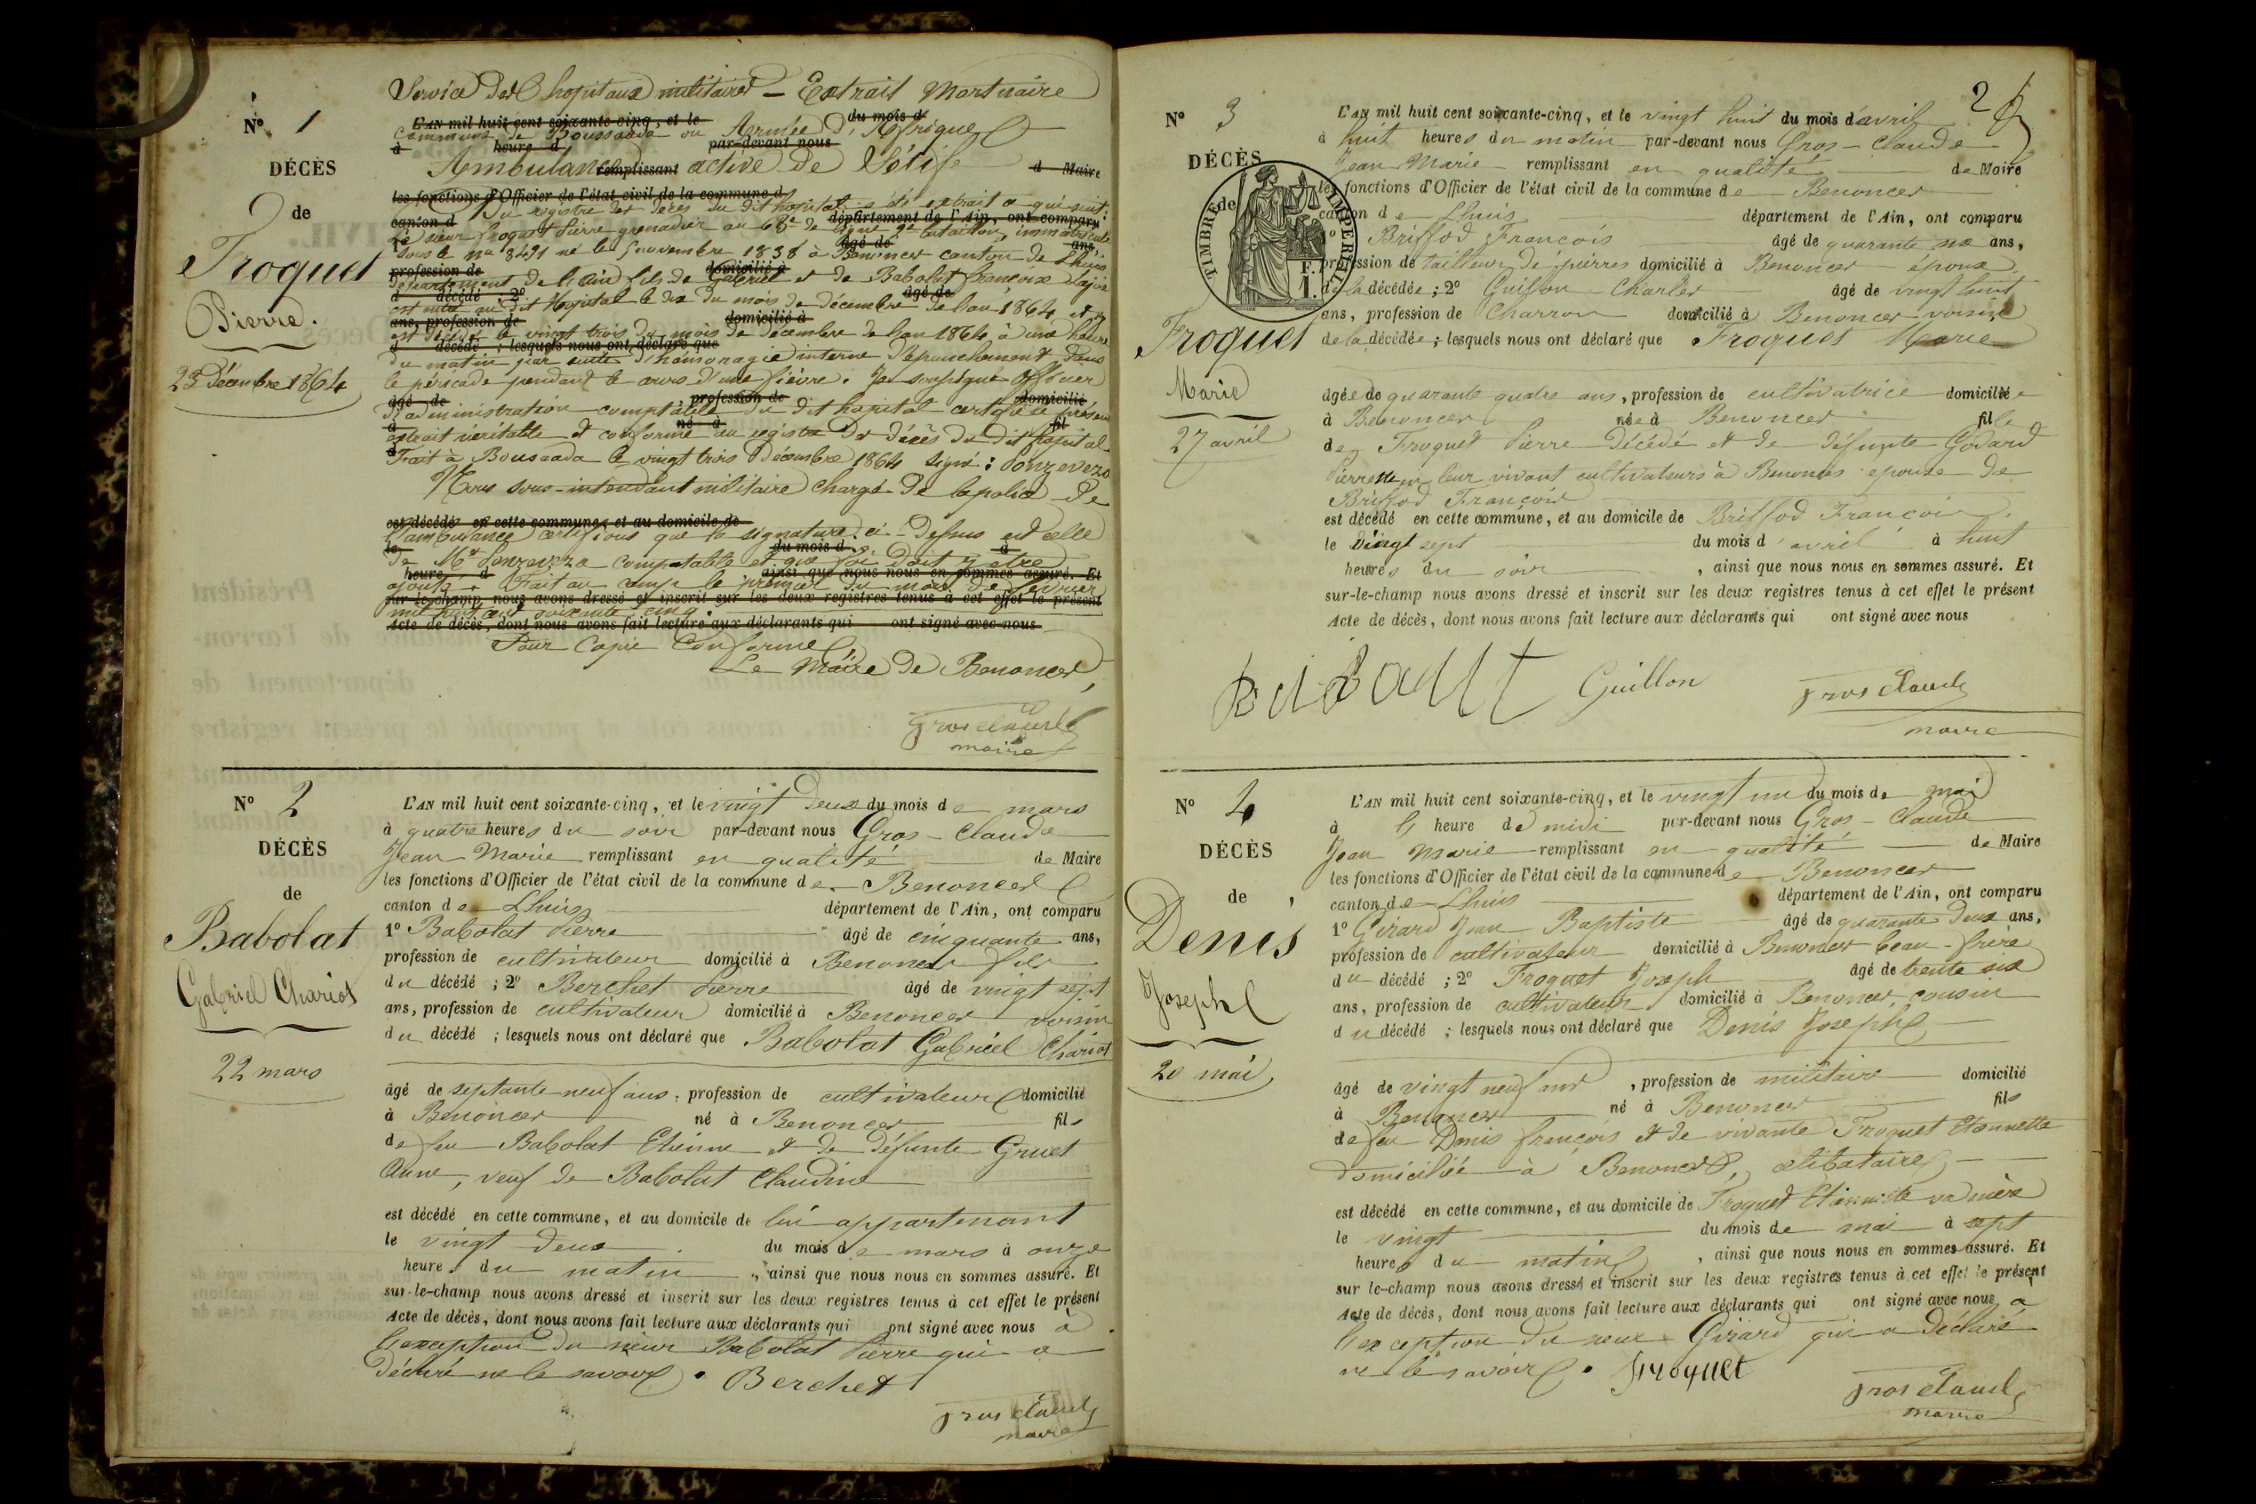 N° 1
DÉCÈS
de
Troquet
Pierre.
23 Décembre 1864
Service des hopitaux militaires - Extrait Mortuaire
L'AN mil huit cent soixante-cinq, et le du mois d
commune de Boussaada ou Armée d'Afrique
à heure d par-devant nous
Ambulance remplissant active de Sétif d Maire
les fonctions d'Officier de l'état civil de la commune d
Du registre des décès du dit hopital a été extrait ce qui suit:
canton d département de l'Ain, ont comparu
Le sieur Troquet Pierre grenadier au 63e de ligne 2e bataillon, immatriculé
1° âgé de ans,
sous le no 8491 né le 5 novembre 1838 à Benonces canton de Lhuis
profession de domicilié à
département de l'Ain fils de Gabriel et de Babolat Françoise
d décédé 2° âgé de
est entré au dit Hopital le dix du mois de décembre de l'an 1864 et y
ans, profession de domicilié à
est décédé le vingt trois du mois de décembre de l'an 1864 à une heure
d décédé ; lesquels nous ont déclaré que
du matin par suite d'hémorragie interne d'épanchement dans
le péricade pendant le cours d'une fièvre. Je soussigné officier
âgé de profession de domicilié
d'administration comptable du dit hopital certifie le présent
à né à fil
extrait véritable et conforme au registre des décès du dit hopital
d
Fait à Bousaada le vingt trois Décembre 1864 signé:
Nous sous-intendant militaire chargé de la police de
est décédé en cette commune, et au domicile de
l'ambulance certifions que la signature ci-dessus est celle
le du mois d à
de Mr comptable et que foi doit y etre
heure d ainsi que nous nous en sommes assuré. Et
ajoutée Fait au camp le premier du mois de février
sur-le-champ nous avons dressé et inscrit sur les deux registres tenus à cet effet le présent
mil huit cent soixante cinq.
Acte de décès, dont nous avons fait lecture aux déclarants qui ont signé avec nous
Pour Copie Conforme
Le Maire de Benonces,
Gros claude
maire
N° 2
DÉCÈS
de
Babolat
Gabriel Chariot
22 mars
L'AN mil huit cent soixante-cinq, et le vingt deux du mois de mars
à quatre heures du soir par-devant nous Gros-Claude
Jean Marie remplissant en qualité de Maire
les fonctions d'Officier de l'état civil de la commune de Benonces
canton de Lhuis département de l'Ain, ont comparu
1° Babolat Pierre âgé de cinquante ans,
profession de cultivateur domicilié à Benonces fils
du décédé ; 2° Berchet Pierre âgé de vingt sept
ans, profession de cultivateur domicilié à Benonces voisin
du décédé ; lesquels nous ont déclaré que Babolat Gabriel Chariot
âgé de septante-neuf ans, profession de cultivateur domicilié
à Benonces né à Benonces fils
de feu Babolat Etienne et de défunte Gruet
Anne, veuf de Babolat Claudine
est décédé en cette commune, et au domicile de lui appartenant
le vingt deux du mois de mars à onze
heure du matin, ainsi que nous nous en sommes assuré. Et
sur-le-champ nous avons dressé et inscrit sur les deux registres tenus à cet effet le présent
Acte de décès, dont nous avons fait lecture aux déclarants qui ont signé avec nous à
l'exception du sieur Babolat Pierre qui a
déclaré ne le savoir. Berchet
Gros claude
maire
2
N° 3
DÉCÈS
de
TIMBRE IMPERIAL
F. 1.
Troquet
Marie
27 avril
L'AN mil huit cent soixante-cinq, et le vingt huit du mois d'avril
à huit heures du matin par-devant nous Gros-Claude
Jean Marie remplissant en qualité de Maire
les fonctions d'Officier de l'état civil de la commune de Benonces
canton de Lhuis département de l'Ain, ont comparu
1° Briffod François âgé de quarante six ans,
profession de tailleur de pierres domicilié à Benonces époux
de la décédée ; 2° Guillon Charles âgé de vingt huit
ans, profession de Charron domicilié à Benonces voisin
de la décédée ; lesquels nous ont déclaré que Troquet Marie
âgée de quarante quatre ans, profession de cultivatrice domiciliée
à Benonces née à Benonces fille
de Troquet Pierre décédé et de défunte Godard
Pierrette leur vivant cultivateurs à Benonces épouse de
Briffod François
est décédé en cette commune, et au domicile de Briffod François.
le vingt sept du mois d'avril à huit
heures du soir, ainsi que nous nous en sommes assuré. Et
sur-le-champ nous avons dressé et inscrit sur les deux registres tenus à cet effet le présent
Acte de décès, dont nous avons fait lecture aux déclarants qui ont signé avec nous
Guillon Gros claude
maire
N° 4
DÉCÈS
de
Denis
Joseph
20 mai
L'AN mil huit cent soixante-cinq, et le vingt un du mois de mai
à heure de midi par-devant nous Gros-Claude
Jean Marie remplissant en qualité de Maire
les fonctions d'Officier de l'état civil de la commune de Benonces
canton de Lhuis département de l'Ain, ont comparu
1° Girard Jean Baptiste âgé de quarante deux ans,
profession de cultivateur domicilié à Benonces beau-frère
du décédé ; 2° Troquet Joseph âgé de trente six
ans, profession de cultivateur domicilié à Benonces, cousin
du décédé ; lesquels nous ont déclaré que Denis Joseph
âgé de vingt neuf ans, profession de militaire domicilié
à Benonces né à Benonces fils
de feu Denis françois et de vivante Troquet Etiennette
domiciliée à Benonces, célibataire
est décédé en cette commune, et au domicile de Troquet Etiennette sa mère
le vingt du mois de mai à sept
heures du matin, ainsi que nous nous en sommes assuré. Et
sur-le-champ nous avons dressé et inscrit sur les deux registres tenus à cet effet le présent
Acte de décès, dont nous avons fait lecture aux déclarants qui ont signé avec nous à
l'exception du sieur Girard qui a déclaré
ne le savoir. Troquet
Gros claude
maire